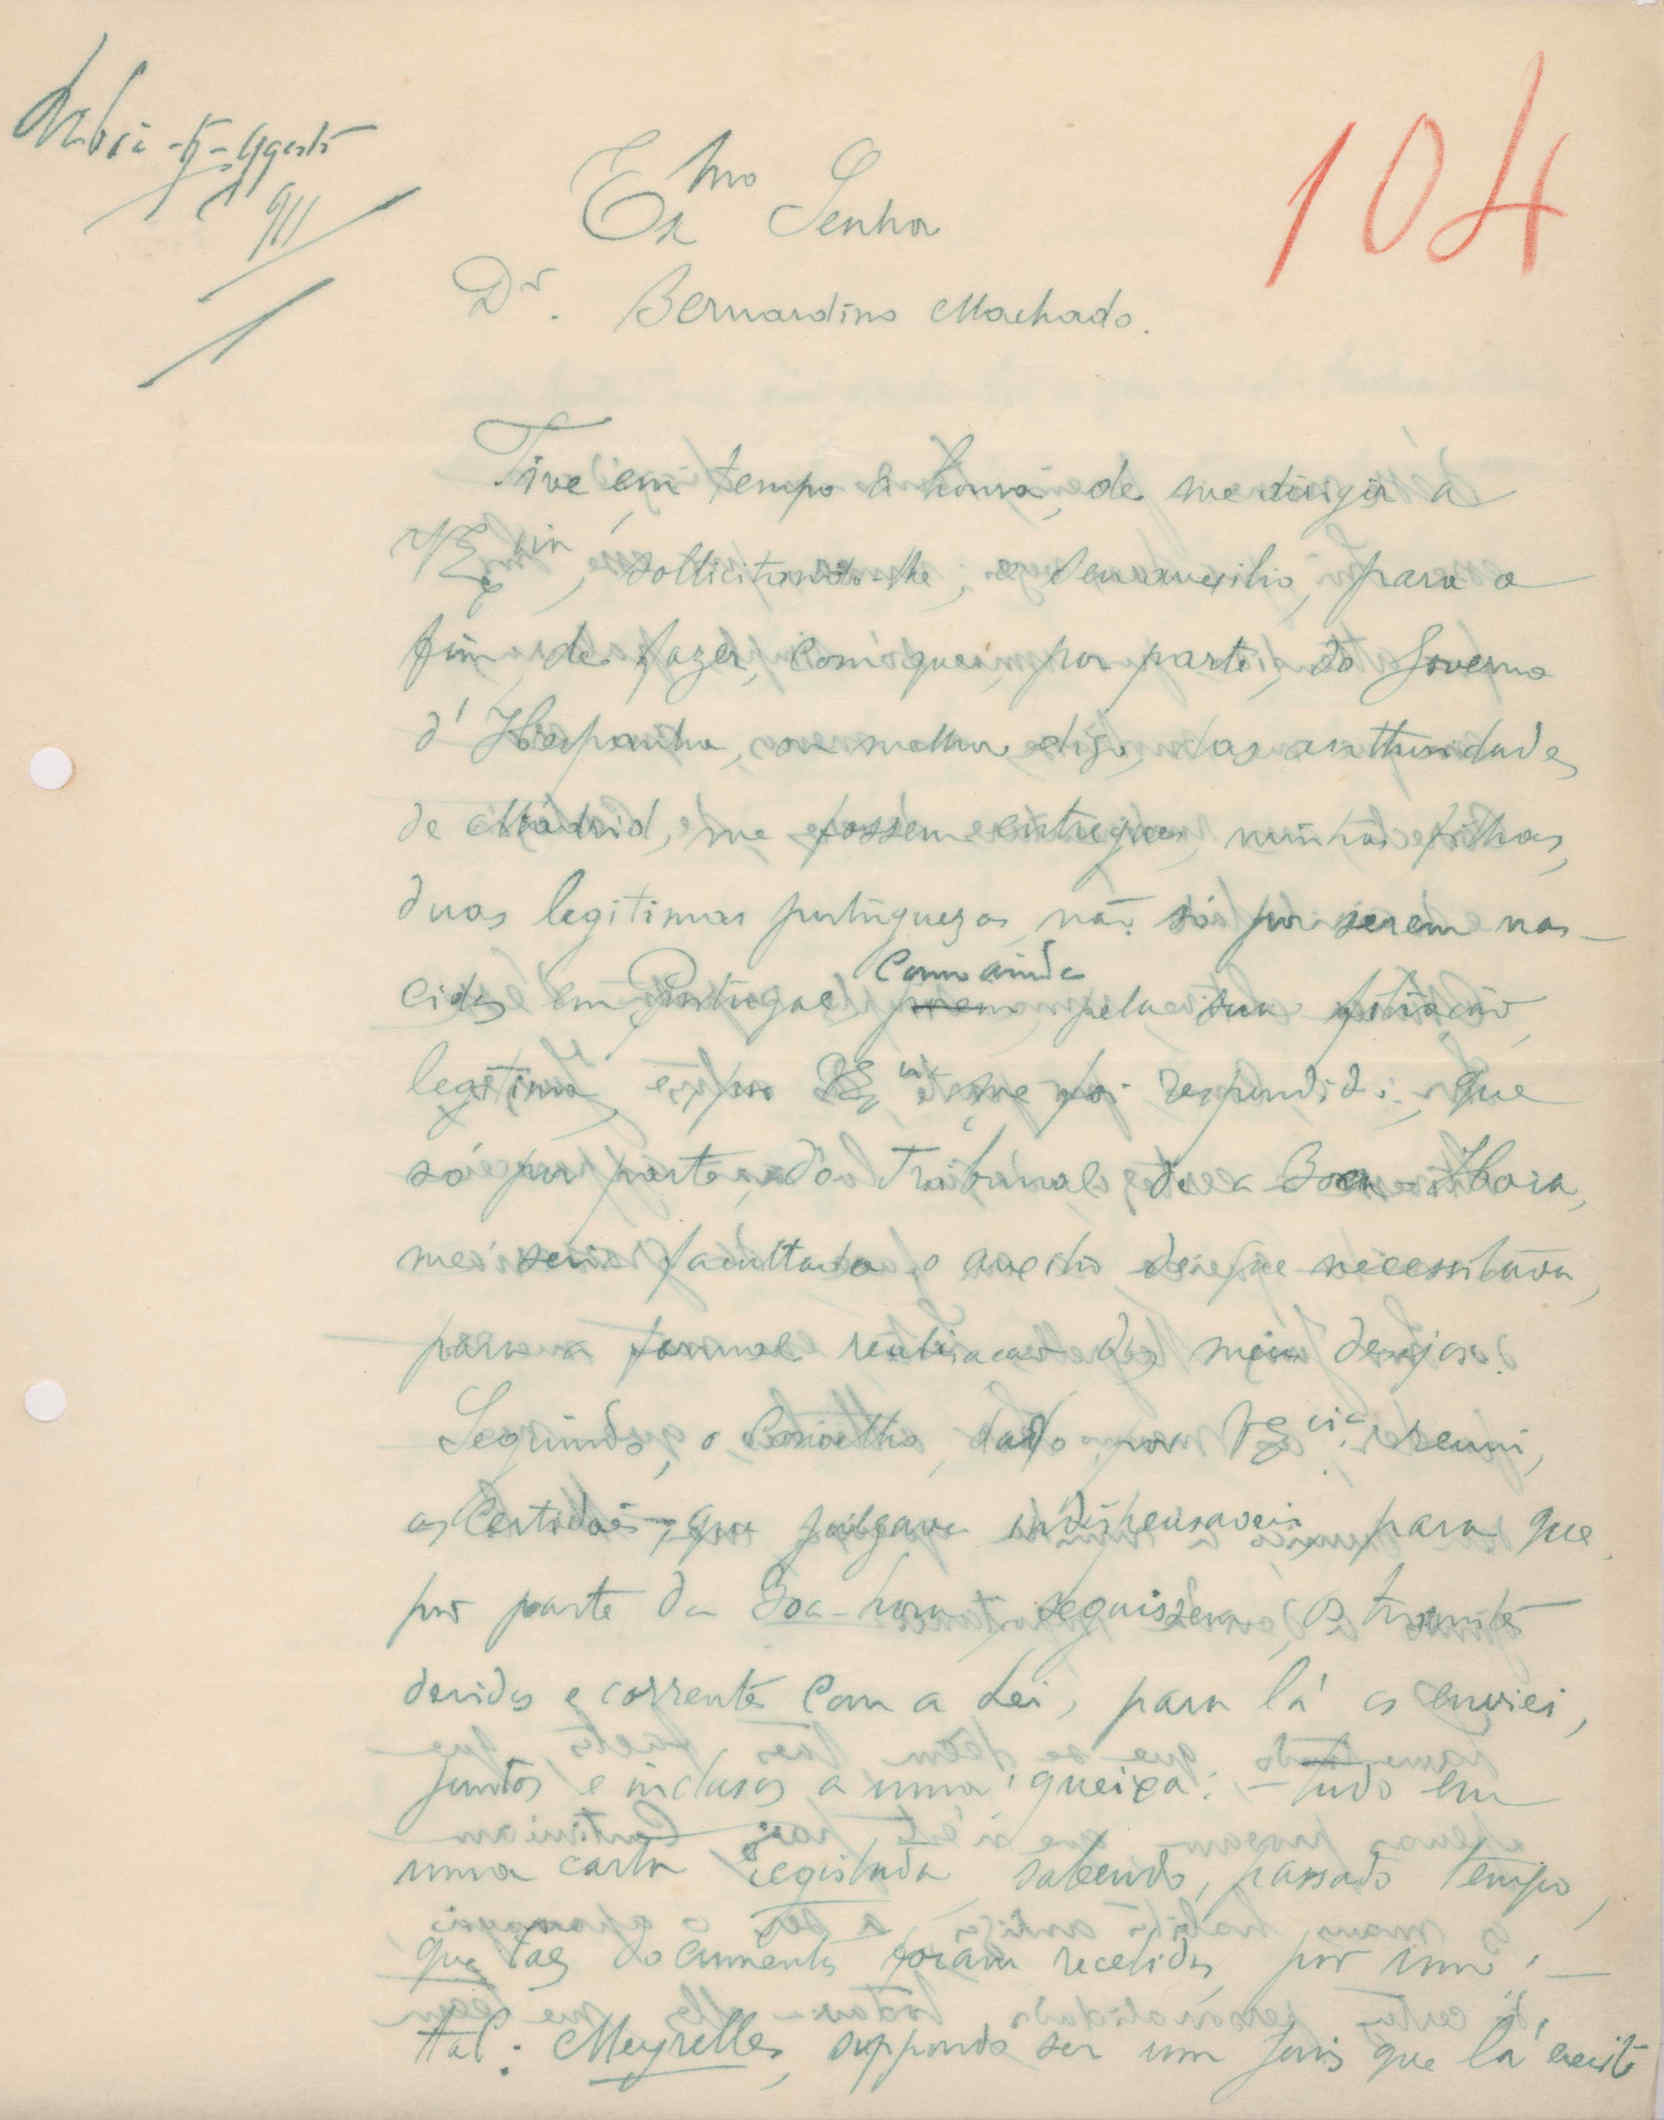 5 - Agosto
911
104
Exmo Senhor
Dr. Bernardino Machado.
Tive em tempo a honra, de me dirigir a
VExcia, sollicitando-lhe, o seu auxilio, para o
fim, de fazer, com que, por parte, do Governo
d'Hespanha, ou melhor digo, das authoridades
de Madrid, me fossem entregues, minhas filhas,
duas legitimas portuguezas, não só por serem nas-
cidas em Portugal como ainda pela sua filiação
legitima, e por VExcia me foi respondido: que
só por parte, do Tribunal da Boa-Hora,
me seria facultado o auxilio de que necessitava,
para a formal realisacao dos meus desejos.
Seguindo, o Conselho, dado por VExcia, reuni,
as Certidoẽs, que julgava indispensaveis, para que
por parte da Boa-hora, seguissem, os tramites
devidos e correntes com a Lei, para lá as enviei,
juntos e inclusos a uma queixa: - tudo em
uma carta registada sabendo, passado tempo,
que taes documentos foram recebidos por um: -
tal: Meyrelles, suppondo ser um Juis que lá existe